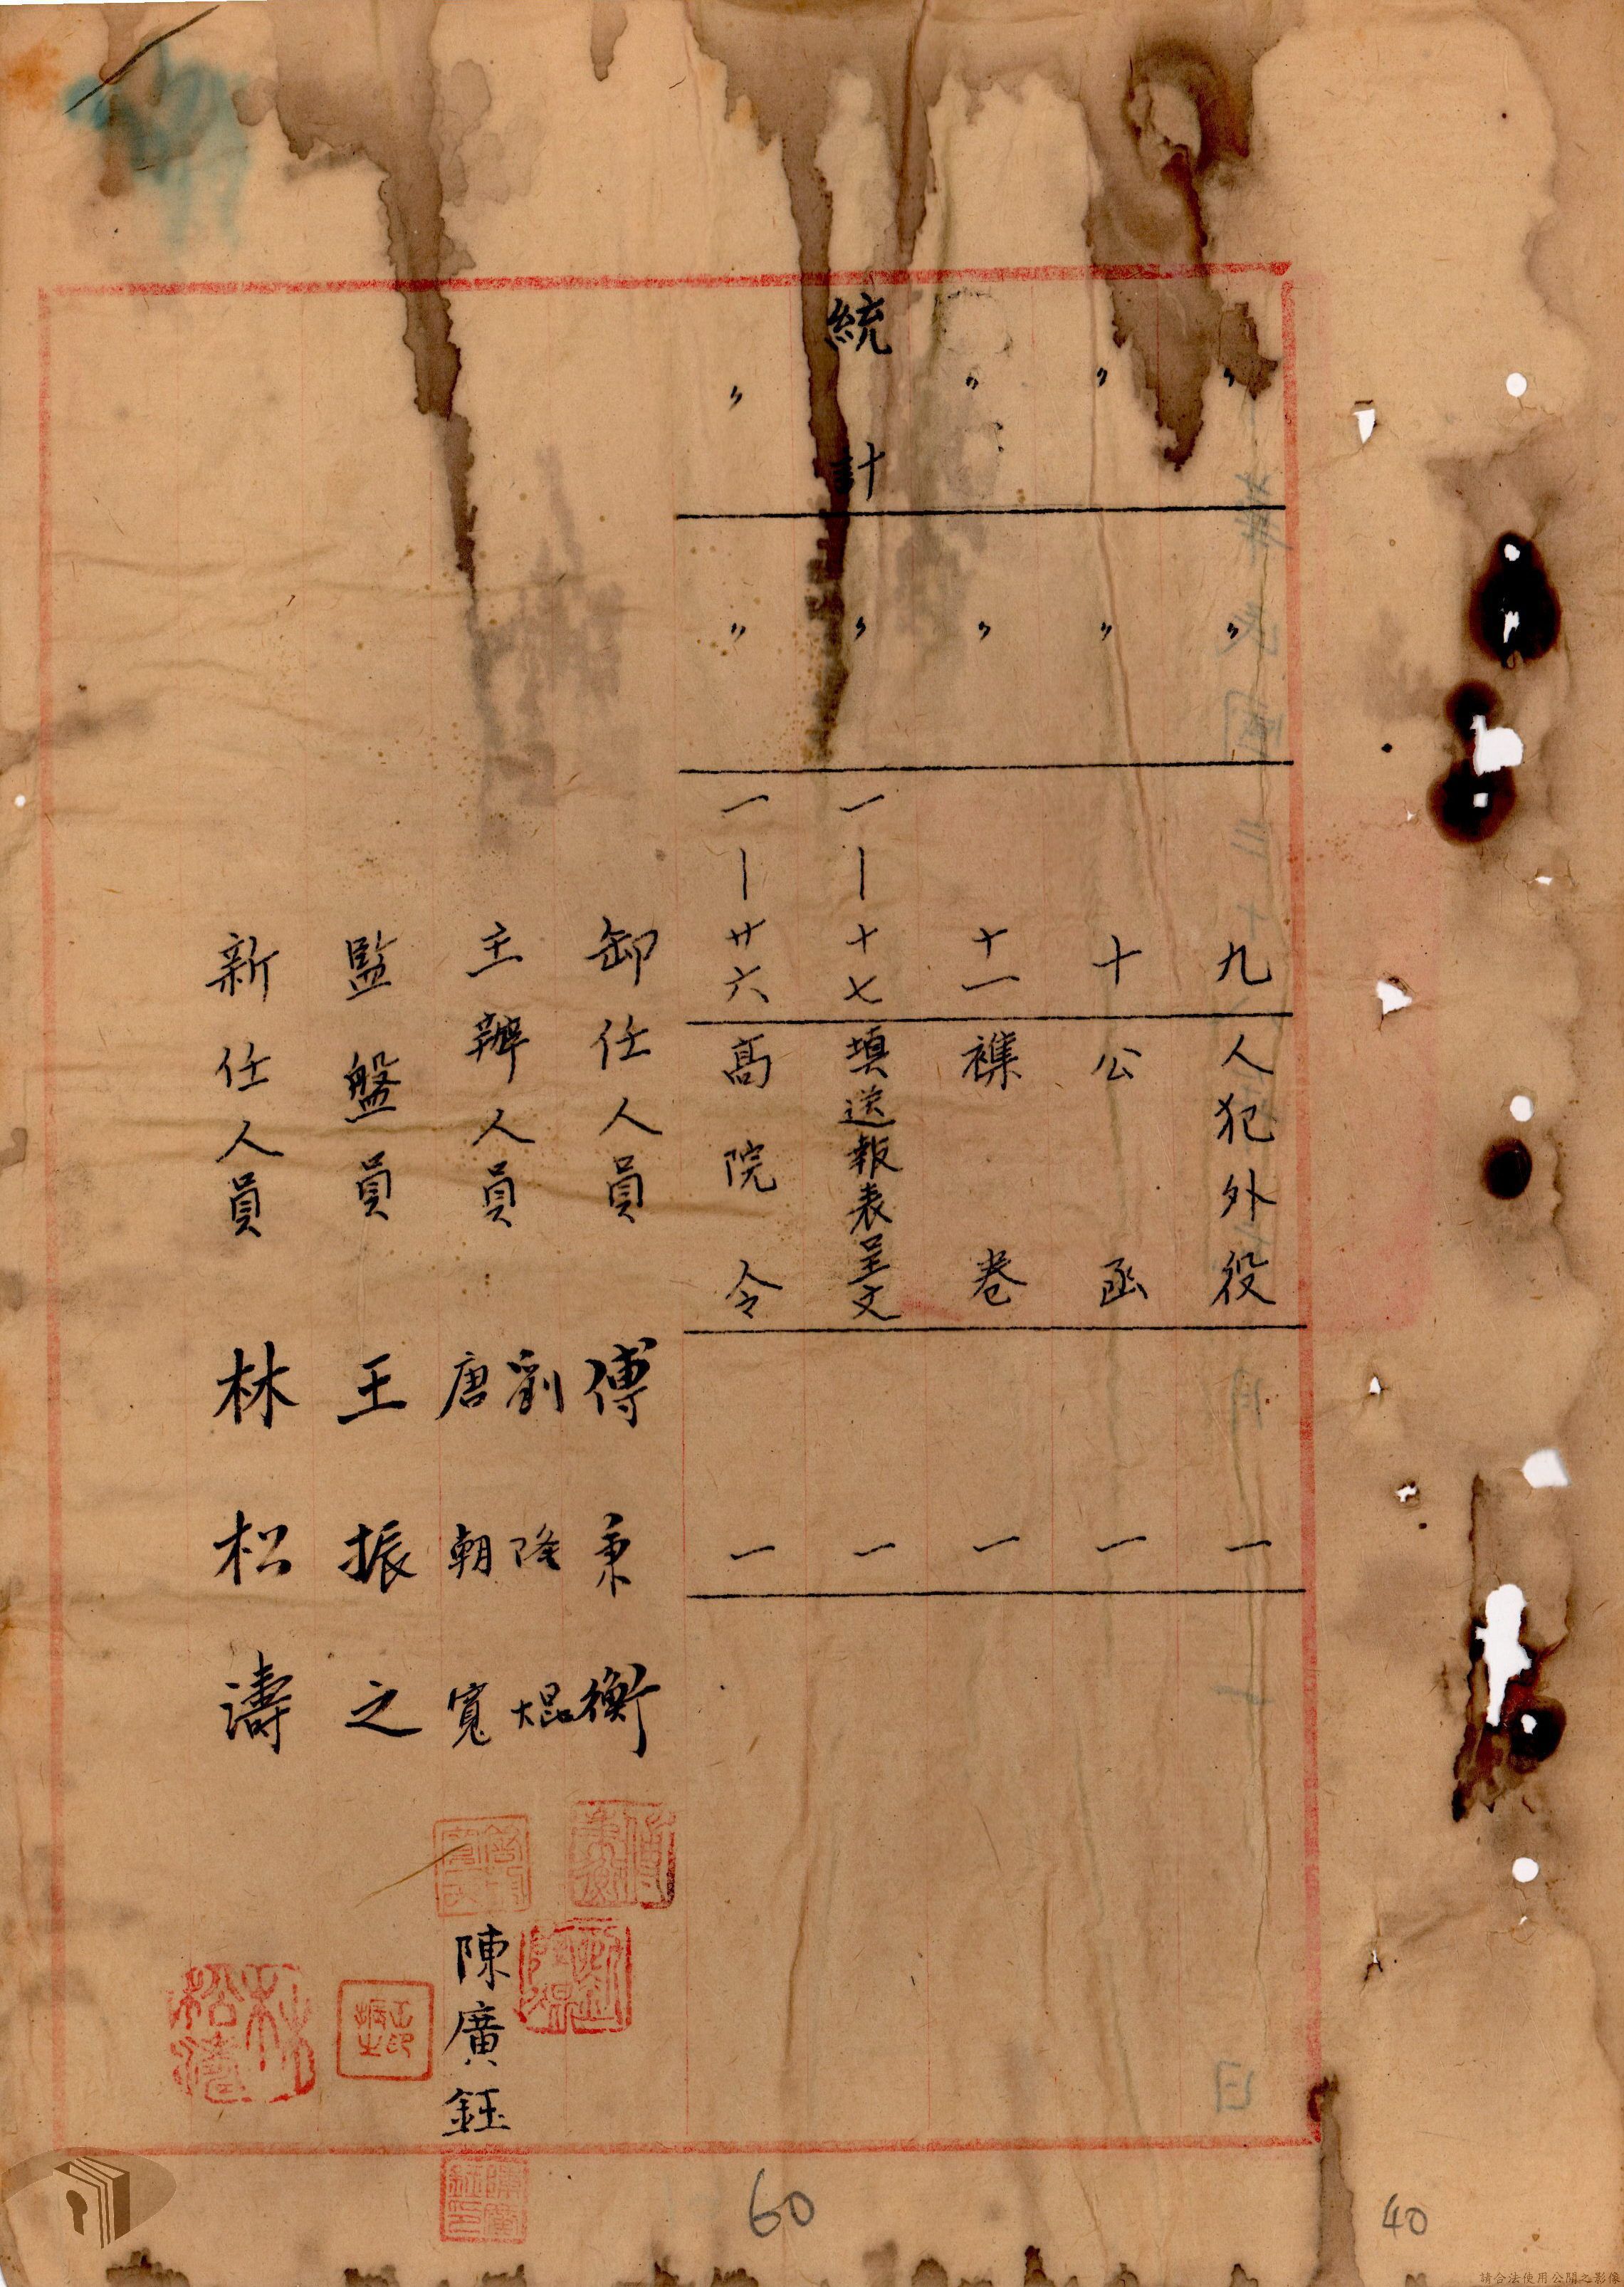 〃 〃 九 人犯外役 一
〃 〃 十 公函 一
〃 〃 十一 襍卷 一
統計 〃 一—十七 填送報表呈文 一
〃 〃 一—廿六 高院令 一
卸任人員 傅秉衡
主辦人員 劉隆焜
唐朝寬
陳廣鈺
監盤員 王振之
新任人員 林松濤
王印振之
林松濤
60
40
請合法使用公開之影像